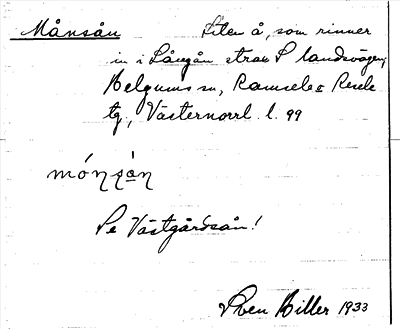 Månsån Liten å, som rinner
in i Långån strax S landsvägen,
Helgums sn, Ramsele o Resele
tg, Västernorrl. l. 99
mó̱nsàn
Se Västgårdsån!
Sven Hiller 1933